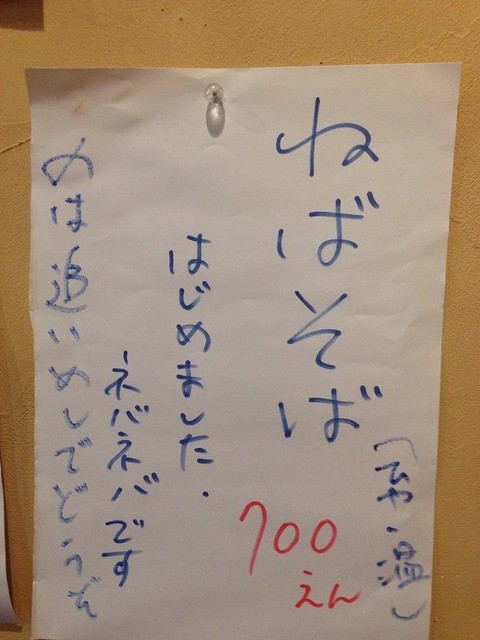 ねばそば
(ひや・温)
700
えん
はじめました.
ネバネバです
〆は追いめしでどうぞ